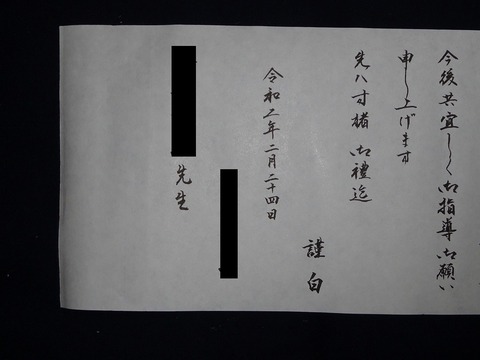 今後共宜しく御指導御願い
申し上げます
先ハ寸楮御禮迄
謹白
令和二年二月二十四日
先生